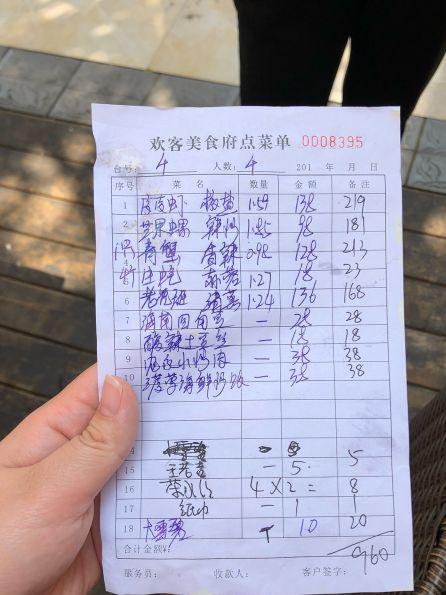 欢客美食府点菜单 0008395
台号: 4 人数: 4 201 年 月 日
序号 菜名 数量 金额 备注
1 皮皮虾 椒盐 1.59 138 219
2 苹果螺 辣炒 1.85 98 181
青蟹 香辣 0.98 128 213
生蚝 蒜蓉 1.27 18 23
6 老虎斑 清蒸 1.24 136 168
7 海南四角豆 一 28 28
8 酸辣土豆丝 一 18 18
9 小炒肉 一 38 38
10 菠萝海鲜炒饭 一 38 38
14
王老吉 一 5. 5
16 4×2= 8
17 纸巾 一 1 1
18 大雪碧 10 20
合计金额¥: 960
服务员: 收款人: 客户签字: